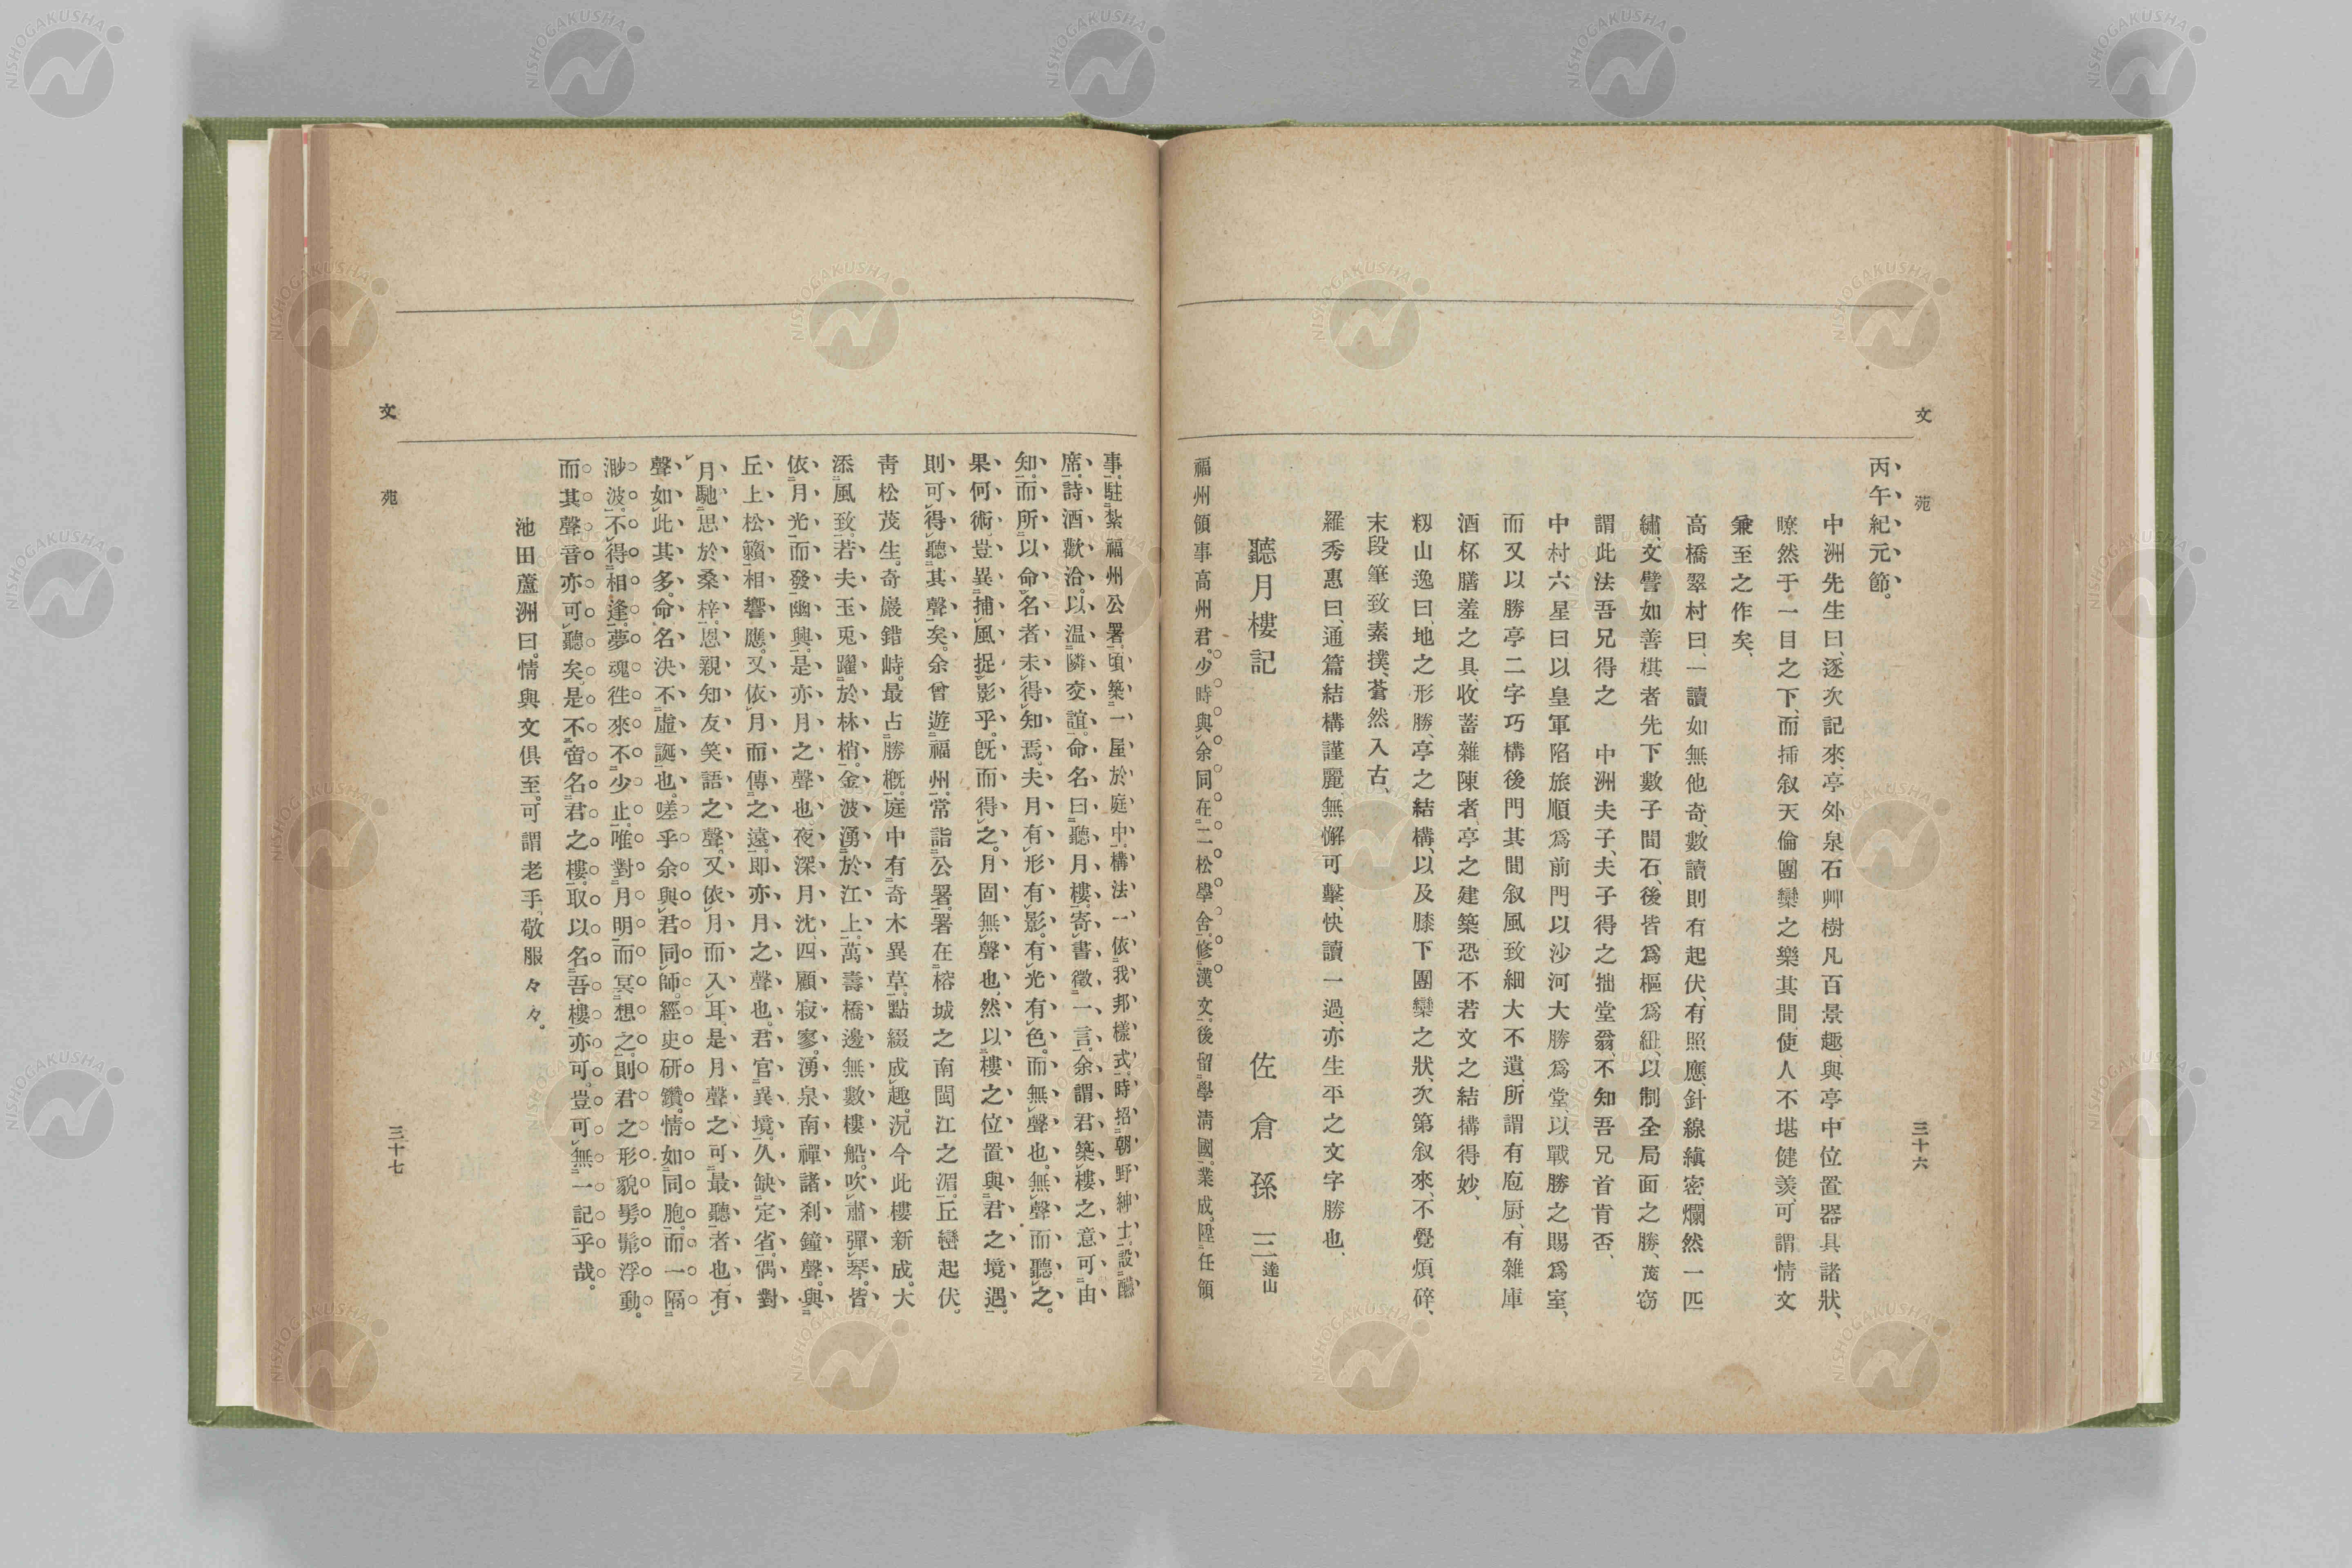 文苑
三十六
丙午紀元節。
中洲先生曰、逐次記來、亭外泉石艸樹凡百景趣、與亭中位置器具諸狀、
暸然于一目之下、而揷叙天倫團欒之樂其間、使人不堪健羨、可謂情文
兼至之作矣、
高橋翠村曰、一讀如無他奇、數讀則有起伏、有照應、針線縝密、爛然一匹
繡、文譬如善棋者先下數子間石、後皆爲樞爲紐、以制全局面之勝、茂窃
謂此法吾兄得之　中洲夫子、夫子得之拙堂翁、不知吾兄首肯否、
中村六星曰、以皇軍陷旅順爲前門以沙河大勝爲堂、以戰勝之賜爲室、
而又以勝亭二字巧構後門其間叙風致細大不遺、所謂有庖厨、有雜庫
酒杯膳羞之具、收蓄雜陳者、亭之建築恐不若文之結搆得妙、
籾山逸曰、地之形勝、亭之結構、以及膝下團欒之狀、次第叙來、不覺煩碎、
末段筆致素撲、蒼然入古、
羅秀惠曰、通篇結構謹麗無懈可擊、快讀一過、亦生平之文字勝也、
聽月樓記
佐倉孫三 達山
福州領事高州君。少時與余同在二松學舍。修漢文。後留學淸國。業成、陞任領
事。駐紮福州公署。頃築一屋於庭中。構法一依我邦樣式。時招朝野紳士。設醼
席。詩酒歡洽。以温隣交誼。命名曰聽月樓。寄書徵一言。余謂君築樓之意可由
知。而所以命名者未得知焉。夫月有形有影。有光有色。而無聲也。無聲而聽之。
果何術。豈異捕風捉影乎。旣而得之。月固無聲也、然以樓之位置與君之境遇。
則可得聽其聲矣。余曾遊福州。常詣公署。署在榕城之南閩江之湄。丘巒起伏。
靑松茂生。奇巖錯峙。最占勝槪。庭中有奇木異草。點綴成趣。況今此樓新成。大
添風致。若夫玉兎躍於林梢。金波湧於江上。萬壽橋邊無數樓船。吹肅彈琴。皆
依月光而發幽興。是亦月之聲也夜深月沈、四顧寂寥。湧泉南禪諸刹鐘聲。與
丘上松籟相響應。又依月而傳之遠。即亦月之聲也。君官異境。久缺定省。偶對
月馳思於桑梓。恩親知友笑語之聲。又依月而入耳。是月聲之可最聽者也。有
聲如此其多。命名決不虛誕也。嗟乎余與君同師。經史研鑽。情如同胞。而一隔
渺波。不得相逢。夢魂徃來不少止。唯對月明而冥想之。則君之形貌髣髴浮動。
而其聲音亦可聽矣。是不啻名君之樓。取以名吾樓亦可。豈可無一記乎哉。
池田蘆洲曰。情與文俱至。可謂老手、敬服々々。
文苑
三十七
NISHOGAKUSHA